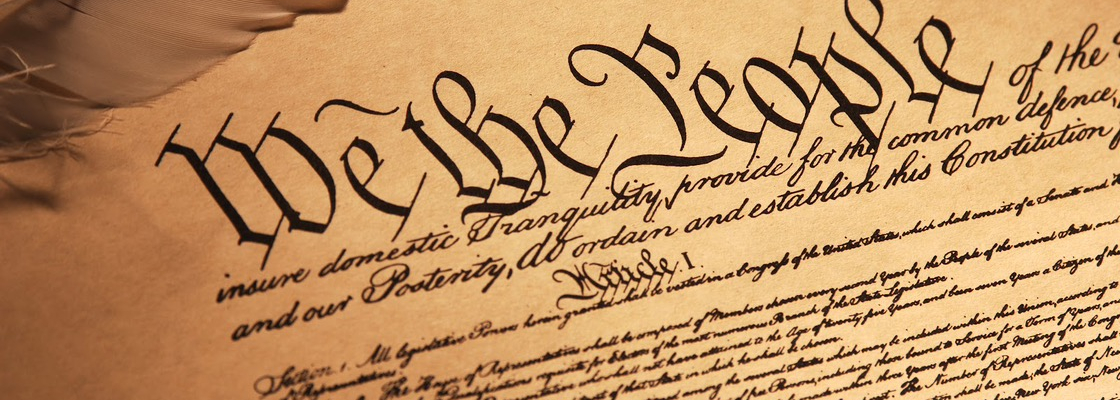 We the People of the
insure domestic Tranquility, provide for the common defence,
and our Posterity, do ordain and establish this Constitution
Article. I.
Section. 1. All legislative Powers herein granted shall be vested in a Congress of the United States, which shall consist of a Senate and
of Representatives.
The House of Representatives shall be composed of Members chosen every second Year by the People of the several States, and
Qualifications requisite for Electors of the most numerous Branch of the State Legislature.
who shall not have attained to the Age of twenty five Years, and been seven Years a Citizen of the
of that State in which he shall be chosen.
among the several States which may be included within this Union, according to
free Persons, including those bound to Service for a Term of Years, and
made within three Years after the first Meeting of the Cong
The Number of Representatives shall
shall be made, the State of New
New York six, New